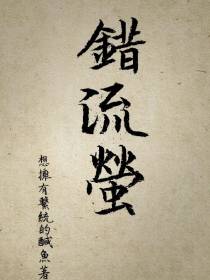 錯流螢
想擁有繫統的鹹魚著